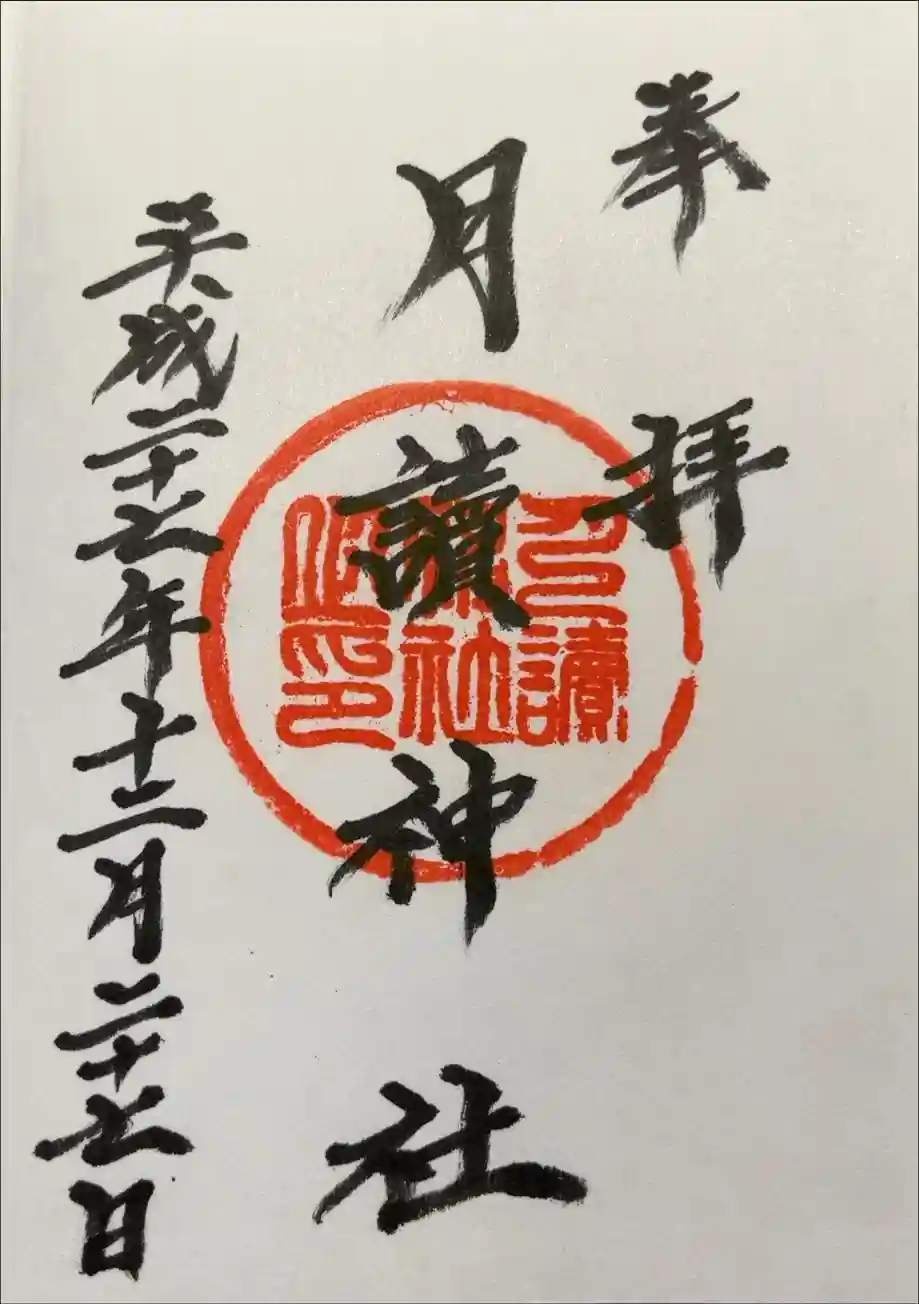 奉拝
月讀神社
月讀神社之印
平成二十七年十二月二十七日